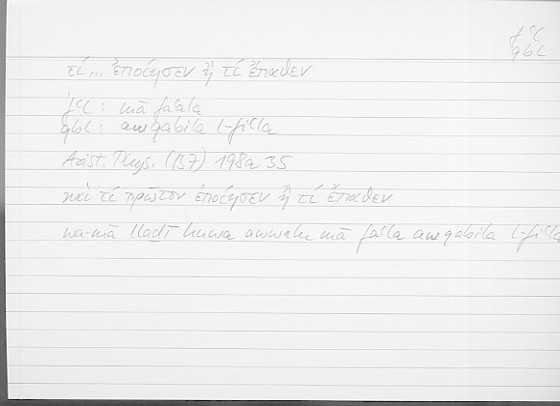 fʿl
qbl
τί... ἐποίησεν ἢ τί ἔπαθεν
fʿl : mā faʿala
qbl : aw qabila l-fiʿla
Arist. Phys. (B7) 198a 35
καὶ τί πρῶτον ἐποίησεν ἢ τί ἔπαθεν
wa-mā lladī huwa awwalu mā faʿala aw qabila l-fiʿla